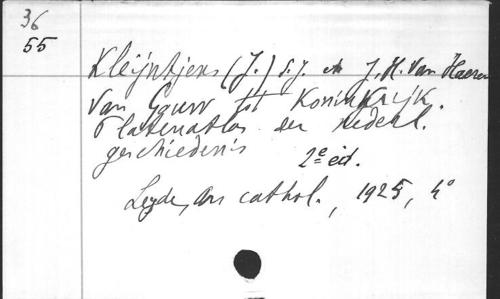 36
55
Kleijntjens (J.) S.J. en J. H. Van Haeren
Van Gouw tot Koninkrijk.
Platenatlas der nederl.
geschiedenis 2e éd.
Leyde, Ars cathol., 1925, 4°